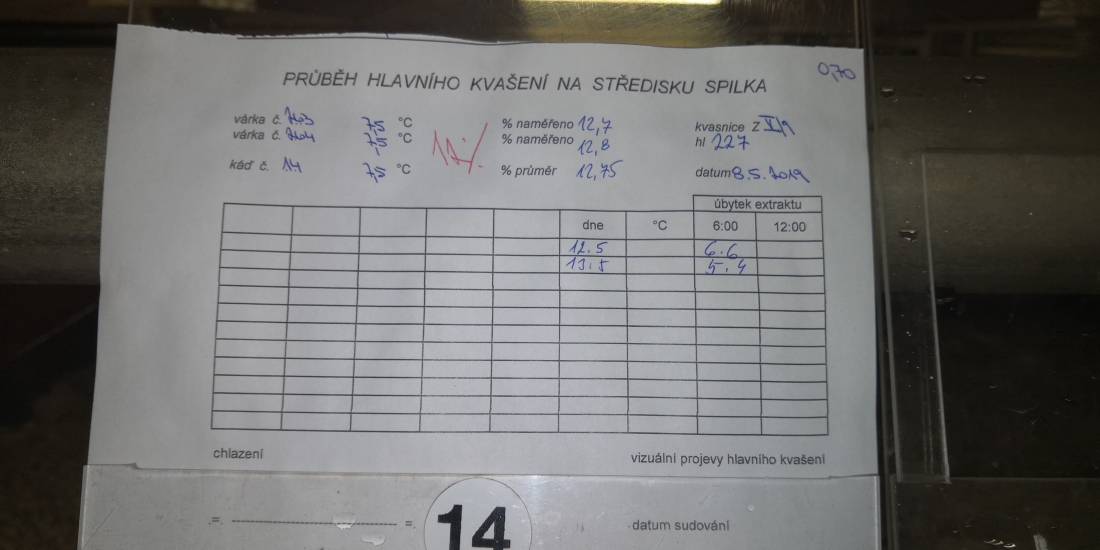 0,70
PRŮBĚH HLAVNÍHO KVAŠENÍ NA STŘEDISKU SPILKA
várka č. 7,5 °C % naměřeno 12,7 kvasnice Z V/9
várka č. 7,5 °C % naměřeno 12,8 hl 227
káď č. 14 7,5 °C % průměr 12,75 datum 8.5.2019
úbytek extraktu
dne °C 6:00 12:00
12.5 6.6
13.5 5.4
chlazení vizuální projevy hlavního kvašení
=. =.
14
datum sudování